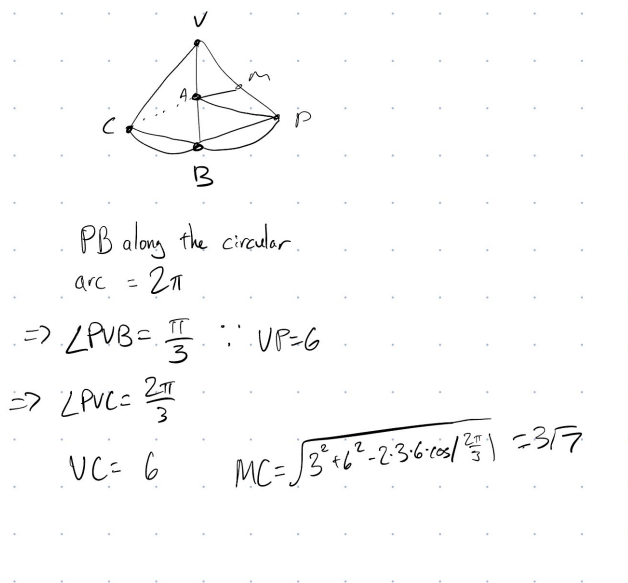 V
A
m
C
P
B
PB along the circular
arc = 2π
=> ∠PVB = π/3 ∵ VP=6
=> ∠PVC = 2π/3
VC = 6 MC = √(3²+6²-2·3·6·cos(2π/3)) = 3√7